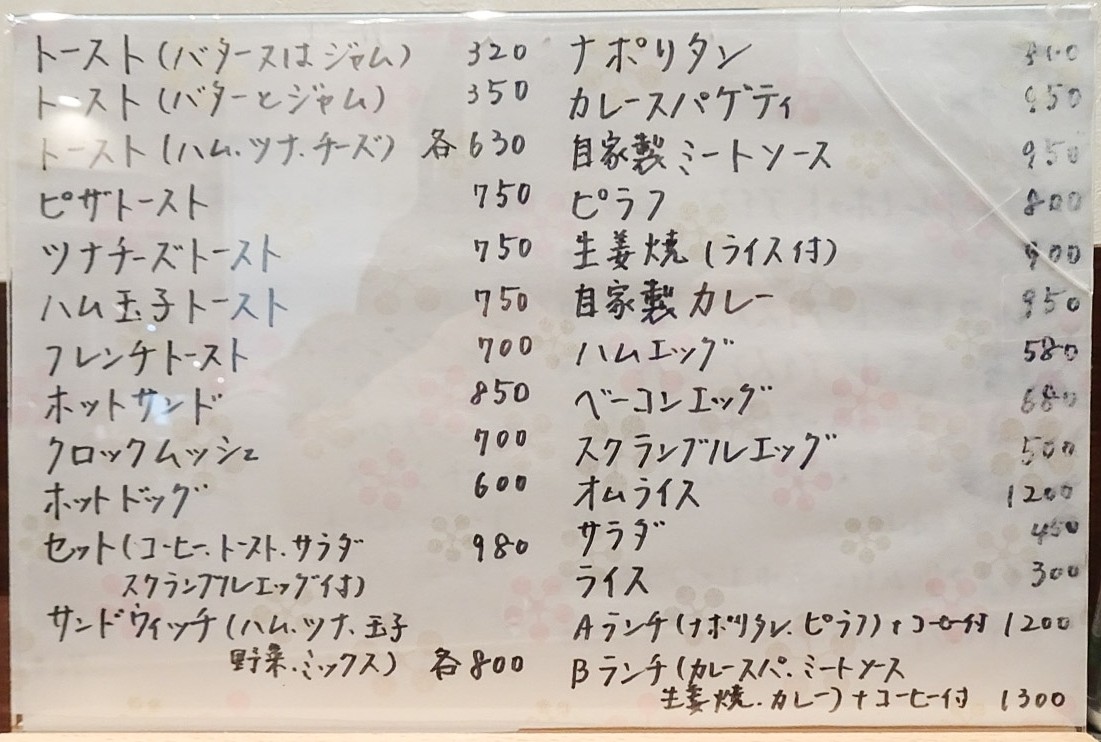 トースト(バタースはジャム) 320
トースト(バターとジャム) 350
トースト(ハム.ツナ.チーズ) 各630
ピザトースト 750
ツナチーズトースト 750
ハム玉子トースト 750
フレンチトースト 700
ホットサンド 850
クロックムッシュ 700
ホットドッグ 600
セット(コーヒー.トースト.サラダ 980
スクランブルエッグ付)
サンドウィッチ(ハム.ツナ.玉子
野菜.ミックス) 各800
ナポリタン
カレースパゲティ 950
自家製ミートソース 950
ピラフ 800
生姜焼(ライス付) 900
自家製カレー 950
ハムエッグ 580
ベーコンエッグ 680
スクランブルエッグ 500
オムライス 1200
サラダ 450
ライス 300
Aランチ(ナポリタン.ピラフ)+コーヒー付 1200
Bランチ(カレースパ.ミートソース
生姜焼.カレー)+コーヒー付 1300